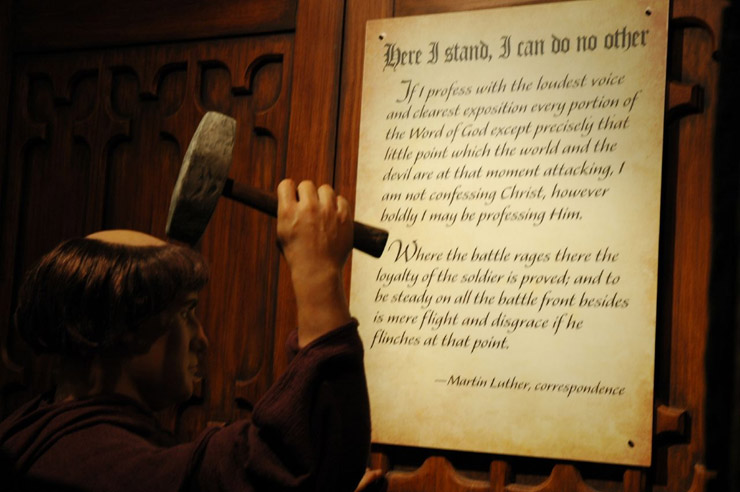 Here I stand, I can do no other
If I profess with the loudest voice
and clearest exposition every portion of
the Word of God except precisely that
little point which the world and the
devil are at that moment attacking, I
am not confessing Christ, however
boldly I may be professing Him.
Where the battle rages there the
loyalty of the soldier is proved; and to
be steady on all the battle front besides
is mere flight and disgrace if he
flinches at that point.
—Martin Luther, correspondence